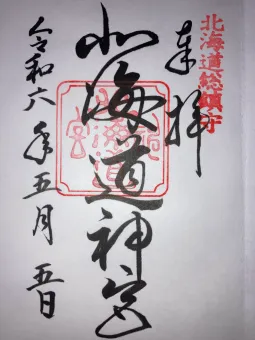 北海道総鎮守
奉拝
北海道神宮
令和六年五月五日